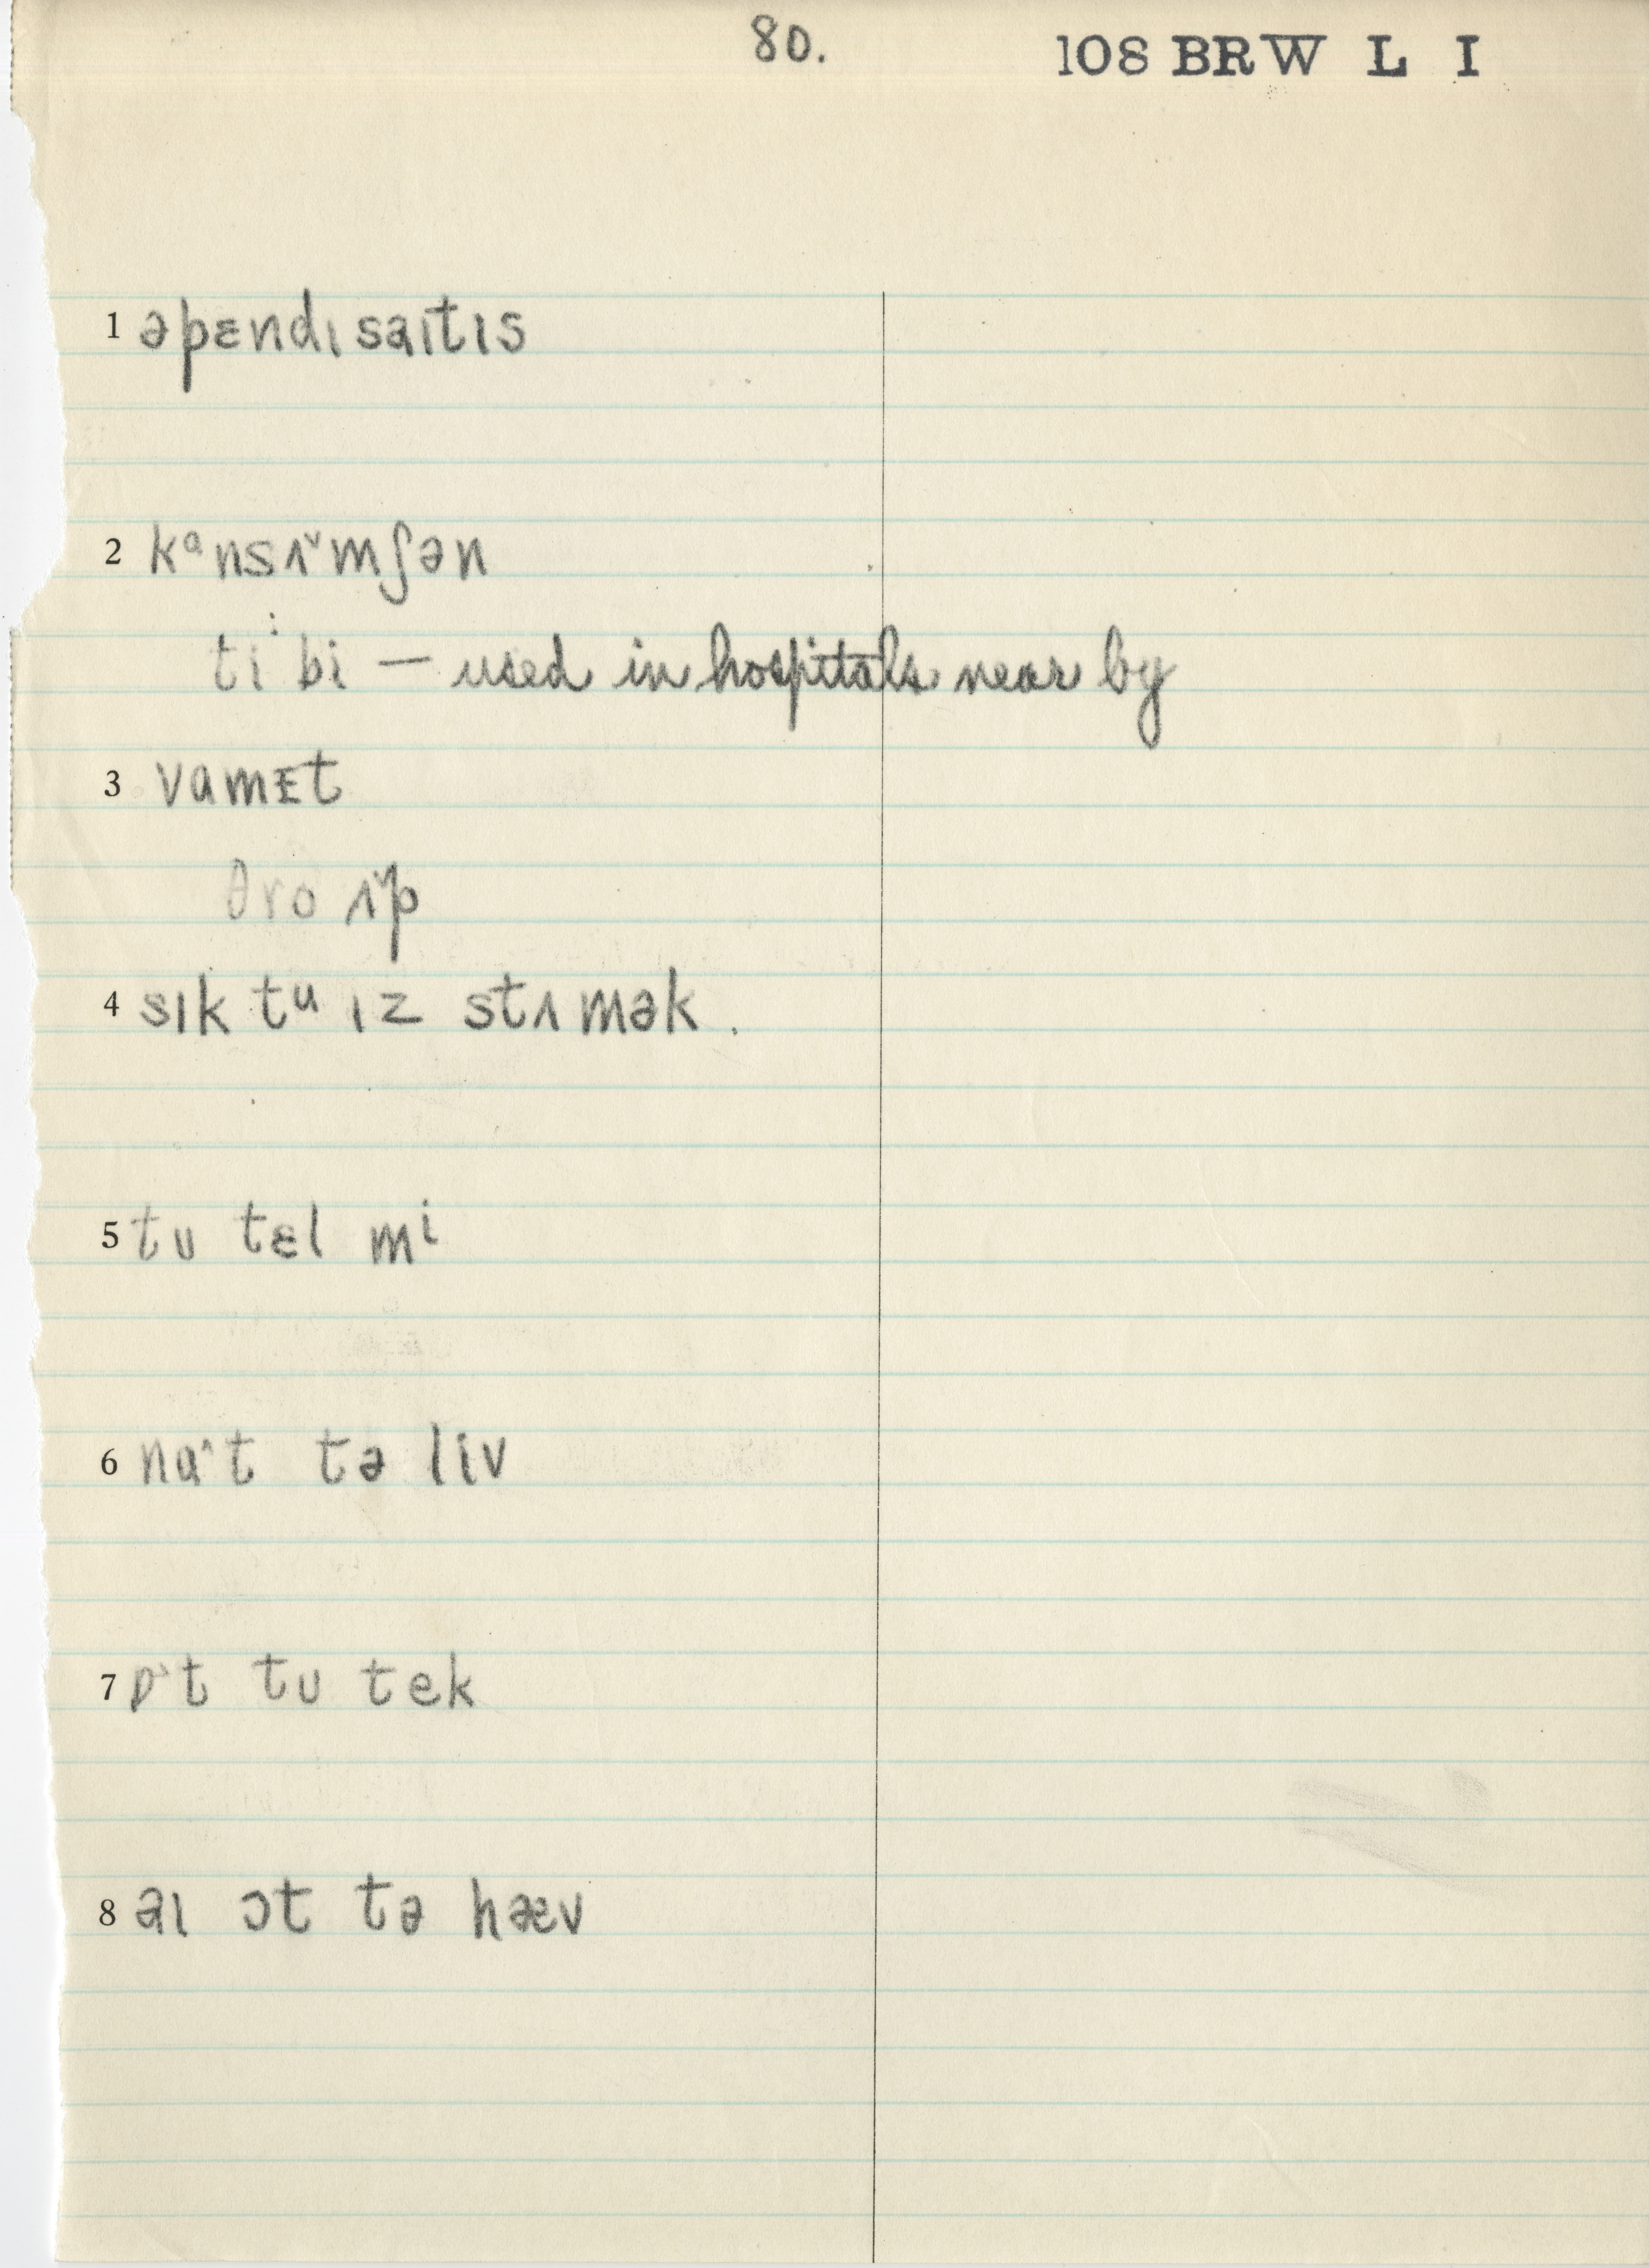 80.
108 BRW L I
1 əpɛndɪsaɪtɪs
2 kᵅnsʌ˅mʃən
ti· bi — used in hospitals near by
3 vamɛt
θro ʌ˅p
4 sɪk tᵘ ɪz stʌmək.
5 tu tɛl mⁱ
6 nɑ˄t tə liv
7 ɒ˔t tu tek
8 aɪ ɔt tə hæv